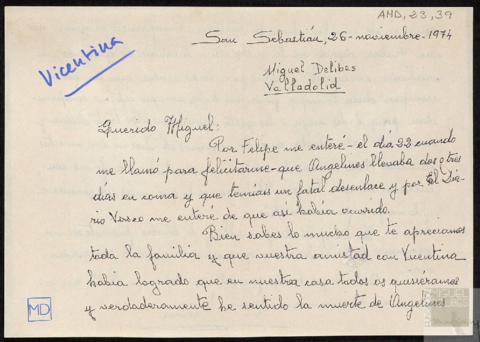 AMD, 23, 39
San Sebastián, 26-noviembre-1974
Vicentina
Miguel Delibes
Valladolid
Querido Miguel:
Por Felipe me enteré-el día 22 cuando
me llamó para felicitarme-que Angelines llevaba dos o tres
días en coma y que temíais un fatal desenlace y por El Dia-
rio Vasco me enteré de que así había ocurrido.
Bien sabes lo mucho que te apreciamos
toda la familia y que vuestra amistad con Vicentina
había logrado que en nuestra casa todos os quisiéramos
y verdaderamente he sentido la muerte de Angelines
MD